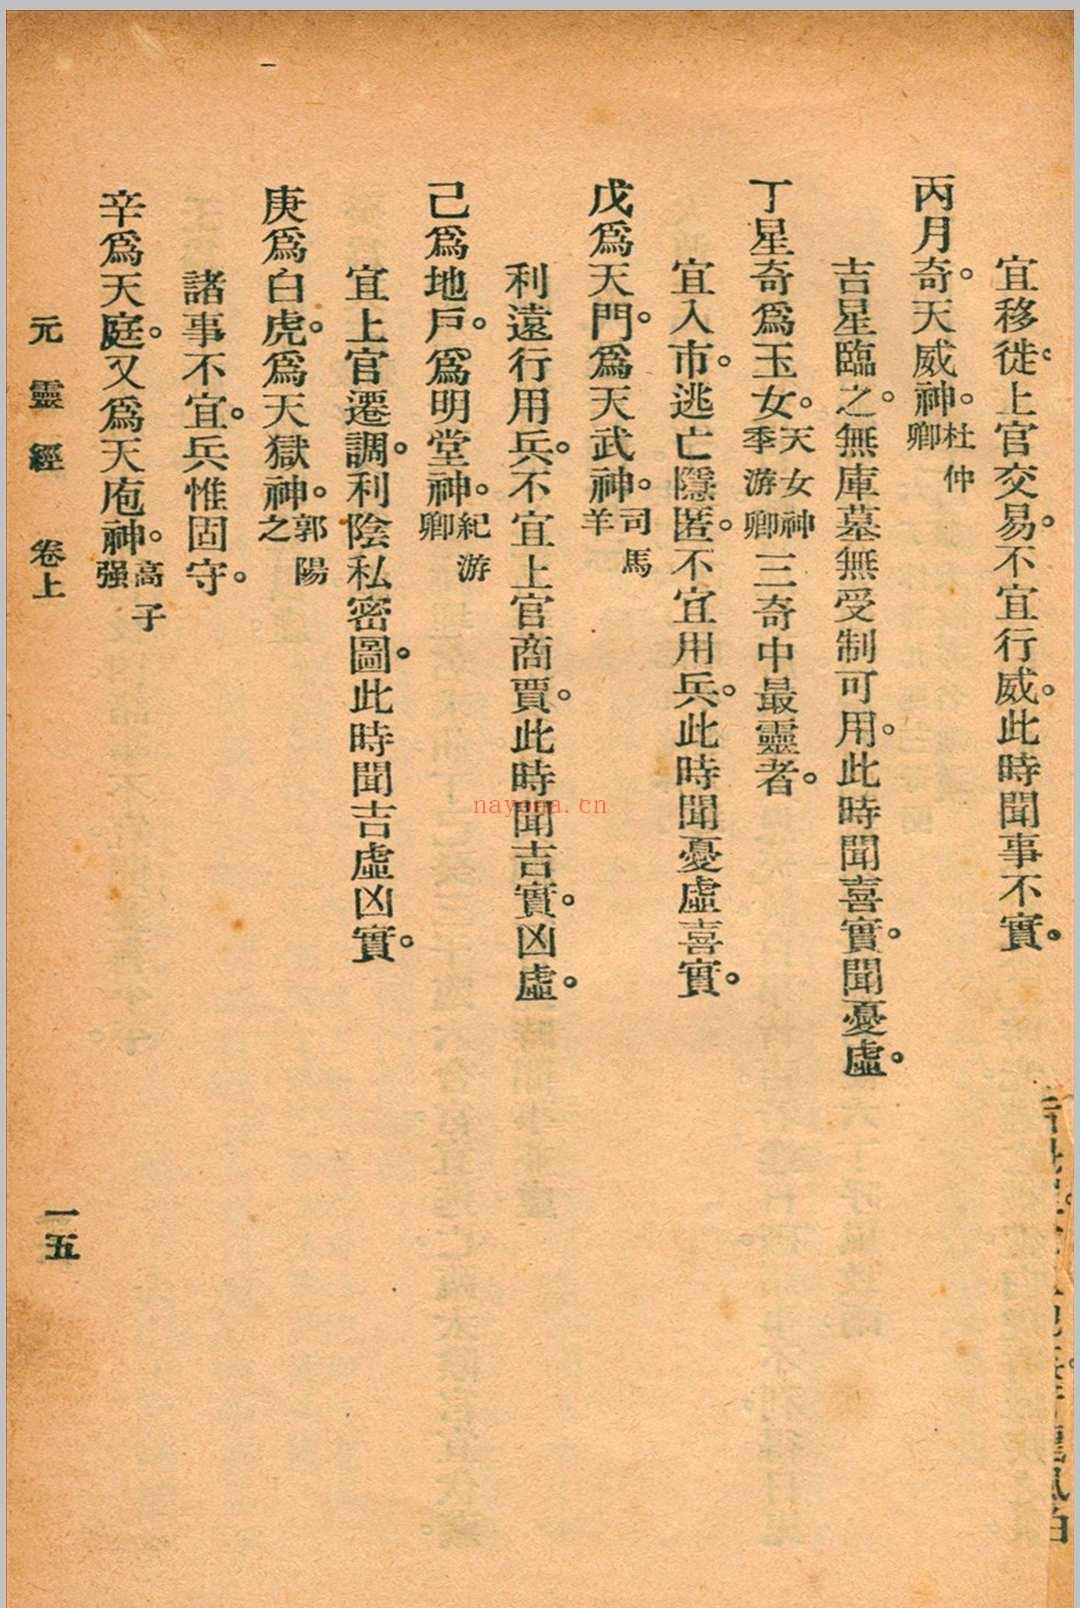 宜移徙。上官交易。不宜行威。此時聞事不實。
丙月奇。天威神。杜仲卿
吉星臨之。無庫墓無受制可用。此時聞喜實。聞憂虛。
丁星奇爲玉女。天女神季游卿三奇中最靈者。
宜入市。逃亡隱匿。不宜用兵。此時聞憂虛喜實。
戊爲天門。爲天武神。司馬羊
利遠行用兵。不宜上官商賈。此時聞吉實。凶虛。
己爲地戶。爲明堂神。紀游卿
宜上官遷調。利陰私密圖。此時聞吉虛凶實。
庚爲白虎。爲天獄神。郭陽之
諸事不宜。兵惟固守。
辛爲天庭。又爲天庖神。高子强
元靈經 卷上
一五
nayona.cn